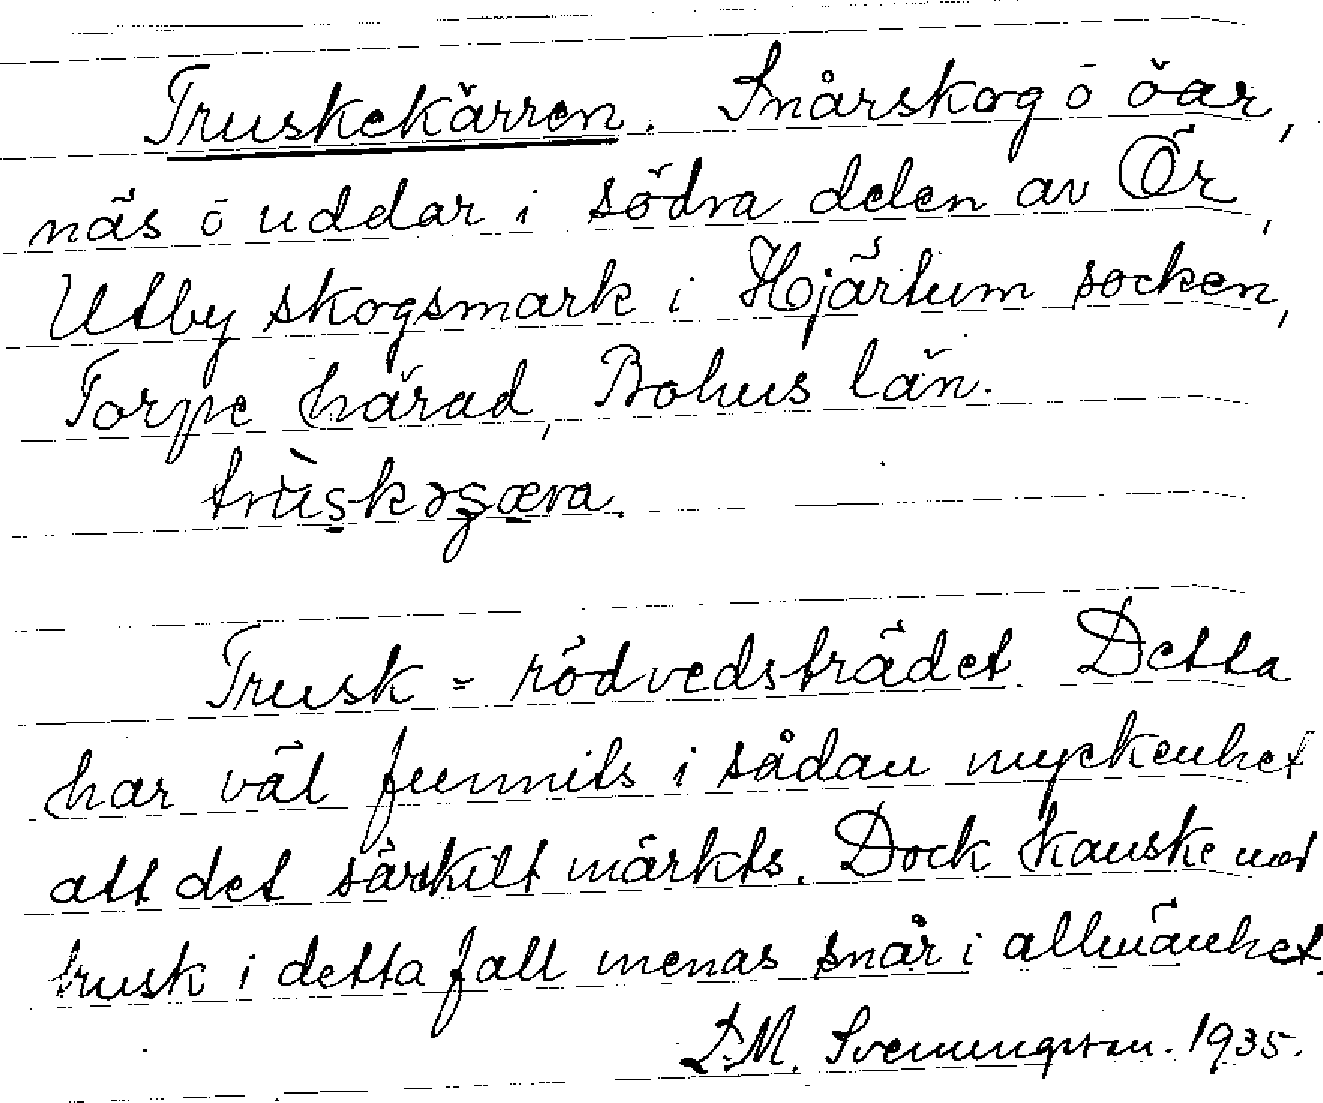 Truskekärren. Snårskog ō öar,
näs ō uddar i södra delen av Ör,
Utby skogsmark i Hjärtum socken,
Torpe härad, Bohus län.
Trusk = rödvedsträdet Detta
har väl funnits i sådan myckenhet
att det särskilt märkts. Dock kanske med
trusk i detta fall menas snår i allmänhet.
S.M. Svenungsson. 1935.